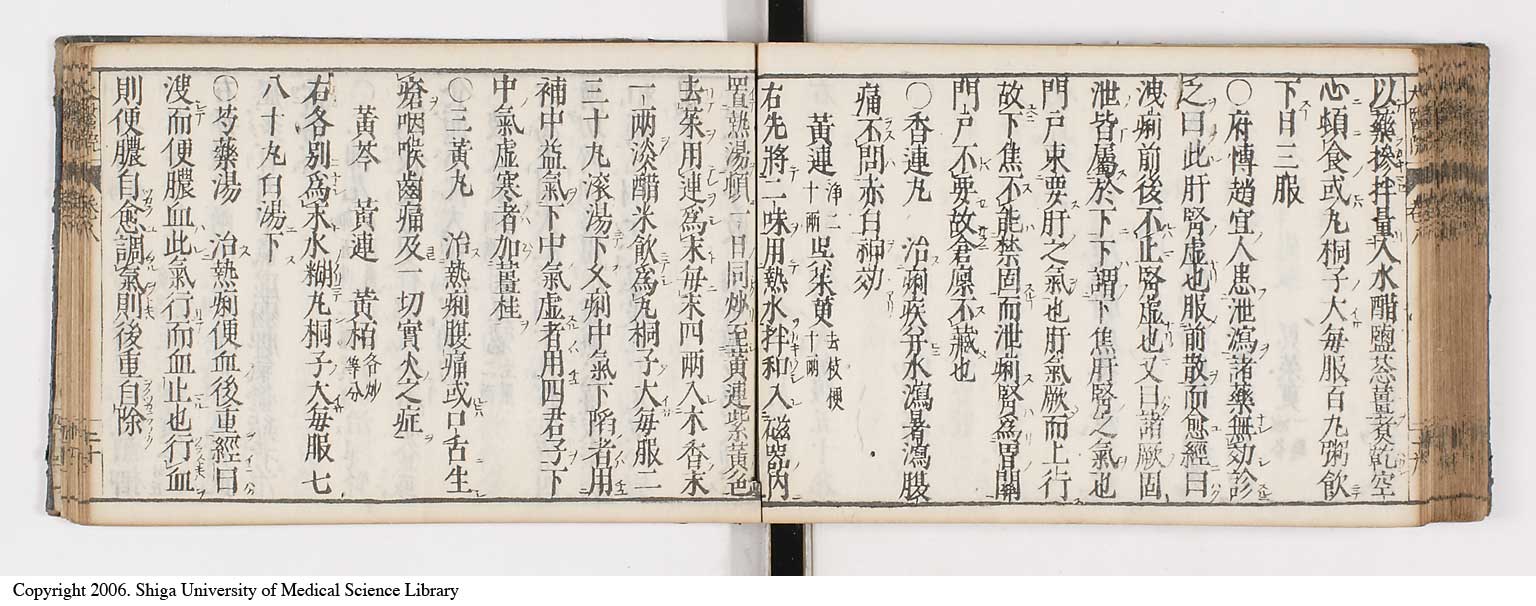 以藥摻拌量入水醋鹽葱薑煮乾空
心頓食或丸桐子大每服百丸粥飲
下日三服
〇府博趙宜人患泄瀉諸藥無効診
之曰此肝腎虛也服前散而愈經曰
洩痢前後不止腎虛也又曰諸厥固
泄皆屬於下下謂下焦肝腎之氣也
門戸束要肝之氣也肝氣厥而上行
故下焦不能禁固而泄痢腎爲胃關
門戸不要故倉廩不藏也
〇香連丸 治痢疾并水瀉暑瀉腹
痛不問赤白神効
黃連 淨二十兩 呉茱萸 去枝梗十兩
右先將二味用熱水拌和入磁器内
置熱湯頓一日同炒至黃連紫黃色
去茱用連爲末每末四兩入木香末
一兩淡醋米飲爲丸桐子大每服二
三十丸滚湯下久痢中氣下陷者用
補中益氣下中氣虛者用四君子下
中氣虛寒者加薑桂
〇三黃丸 治熱痢腹痛或口舌生
瘡咽喉齒痛及一切實火之症
黃芩 黃連 黃栢 各炒等分
右各別爲末水糊丸桐子大每服七
八十丸白湯下
〇芍藥湯 治熱痢便血後重經曰
溲而便膿血此氣行而血止也行血
則便膿自愈調氣則後重自除
Copyright 2006. Shiga University of Medical Science Library